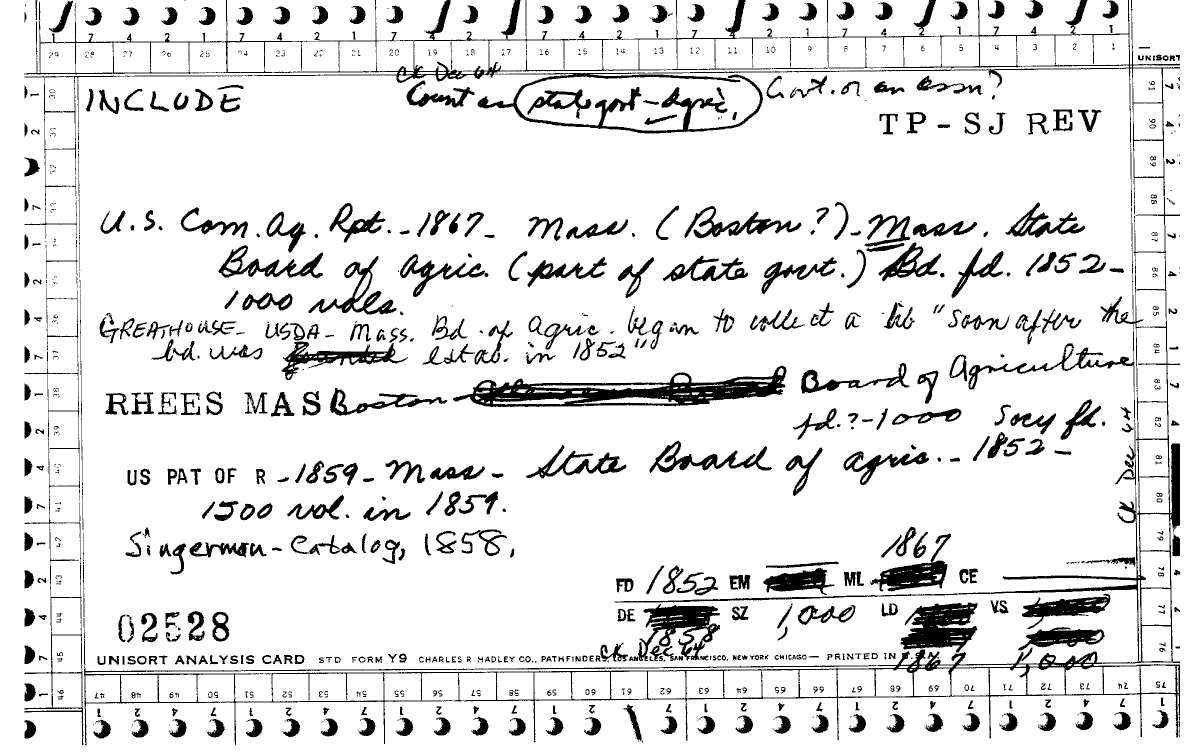 29 28 27 26 25 24 23 22 21 20 19 18 17 16 15 14 13 12 11 10 9 8 7 6 5 4 3 2 1
UNISORT
CK Dec 64
INCLUDE Count as state govt - Agric. Govt. or an assn?
TP-SJ REV
U.S. Com. Ag. Rpt. - 1867 - Mass. (Boston?) - Mass. State
Board of Agric. (part of state govt.) Bd. fd. 1852 -
1000 vols.
GREATHOUSE - USDA - Mass. Bd. of Agric. began to collect a lib "soon after the
bd. was estab. in 1852"
RHEES MAS Boston - Board of Agriculture
fd.? - 1000 Socy fd.
US PAT OF R - 1859 - Mass - State Board of Agric. - 1852 -
1500 vol. in 1859.
CK Dec 64
Singerman - Catalog, 1858,
1867
FD 1852 EM ML CE
DE SZ 1,000 LD VS
1858
02528
CK Dec 64
1867 1,000
UNISORT ANALYSIS CARD STD FORM Y9 CHARLES R HADLEY CO., PATHFINDERS, LOS ANGELES, SAN FRANCISCO, NEW YORK CHICAGO — PRINTED IN
46 47 48 49 50 51 52 53 54 55 56 57 58 59 60 61 62 63 64 65 66 67 68 69 70 71 72 73 74 75